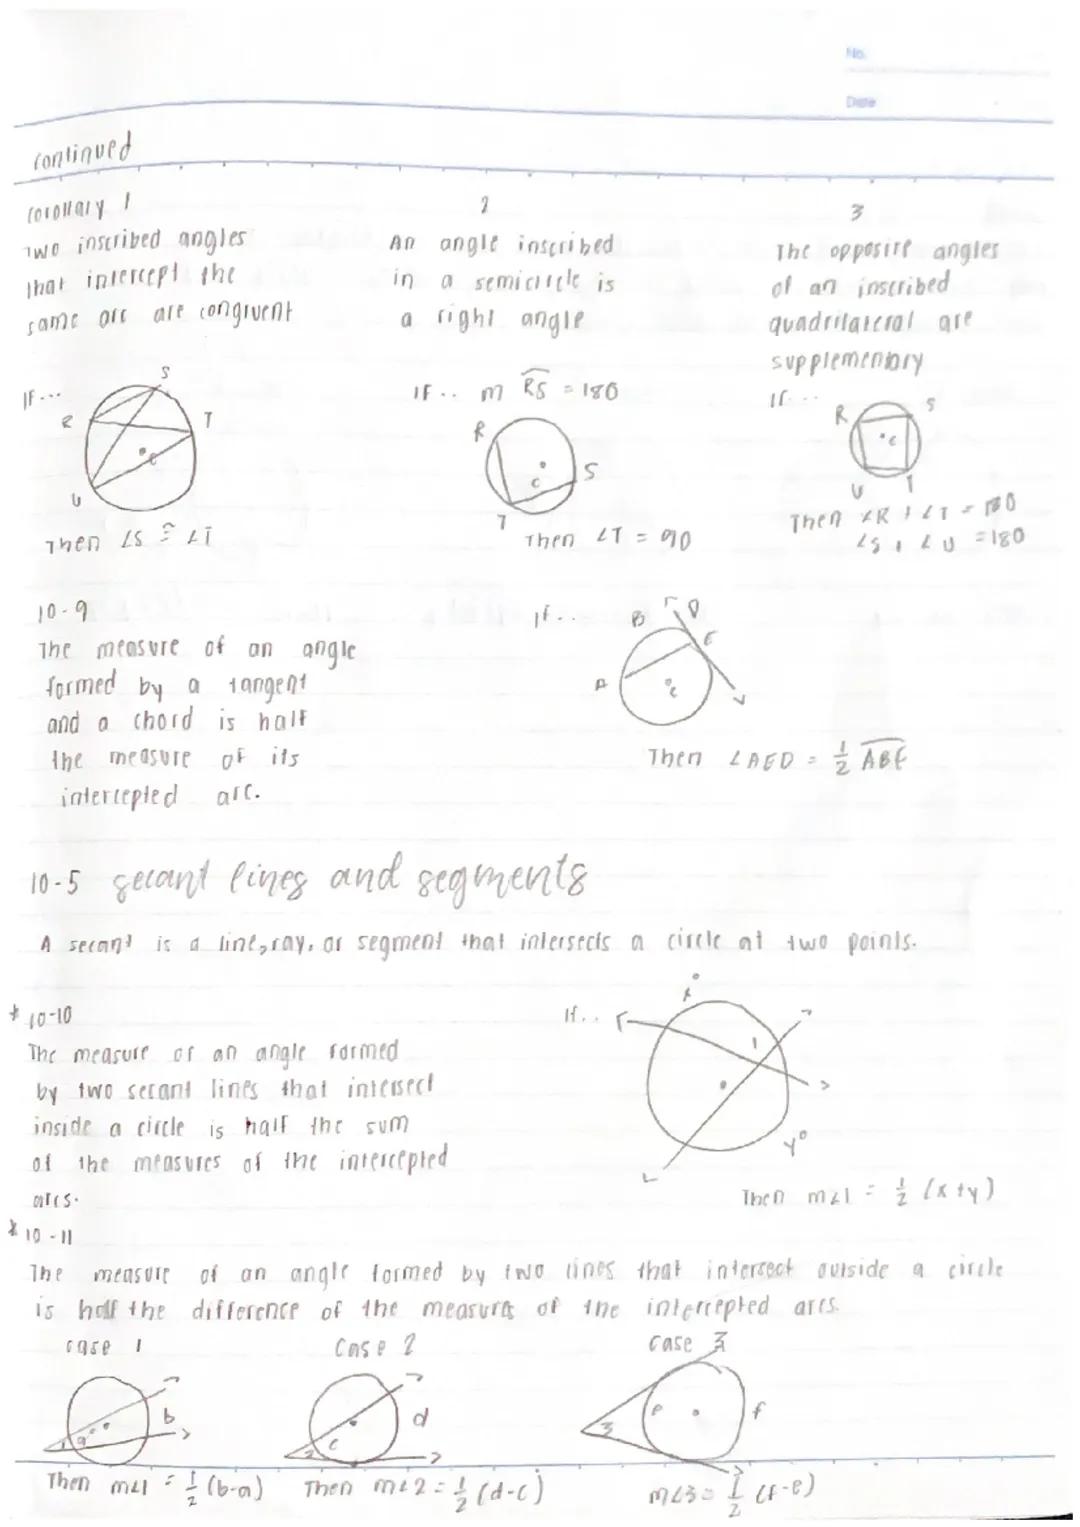 No.
Date
continued
corollary 1
Two inscribed angles
that intercept the
same arc are congruent
If...
S
R
T
C
U
Then ∠S ≅ ∠T
2
An angle inscribed
in a semicircle is
a right angle
If .. m RS = 180
R
S
C
T
Then ∠T = 90
3
The opposite angles
of an inscribed
quadrilateral are
supplementary
If...
R
S
C
U
T
Then ∠R + ∠T = 180
∠S + ∠U = 180
10-9
The measure of an angle
formed by a tangent
and a chord is half
the measure of its
intercepted arc.
If..
B
D
E
A
C
Then ∠AED = 1/2 ABE
10-5 secant lines and segments
A secant is a line, ray, or segment that intersects a circle at two points.
* 10-10
The measure of an angle formed
by two secant lines that intersect
inside a circle is half the sum
of the measures of the intercepted
arcs.
If..
x°
1
y°
Then m∠1 = 1/2 (x+y)
* 10-11
The measure of an angle formed by two lines that intersect outside a circle
is half the difference of the measures of the intercepted arcs.
case 1
Case 2
case 3
1
a
b
2
c
d
3
e
f
Then m∠1 = 1/2 (b-a)
Then m∠2 = 1/2 (d-c)
m∠3 = 1/2 (f-e)